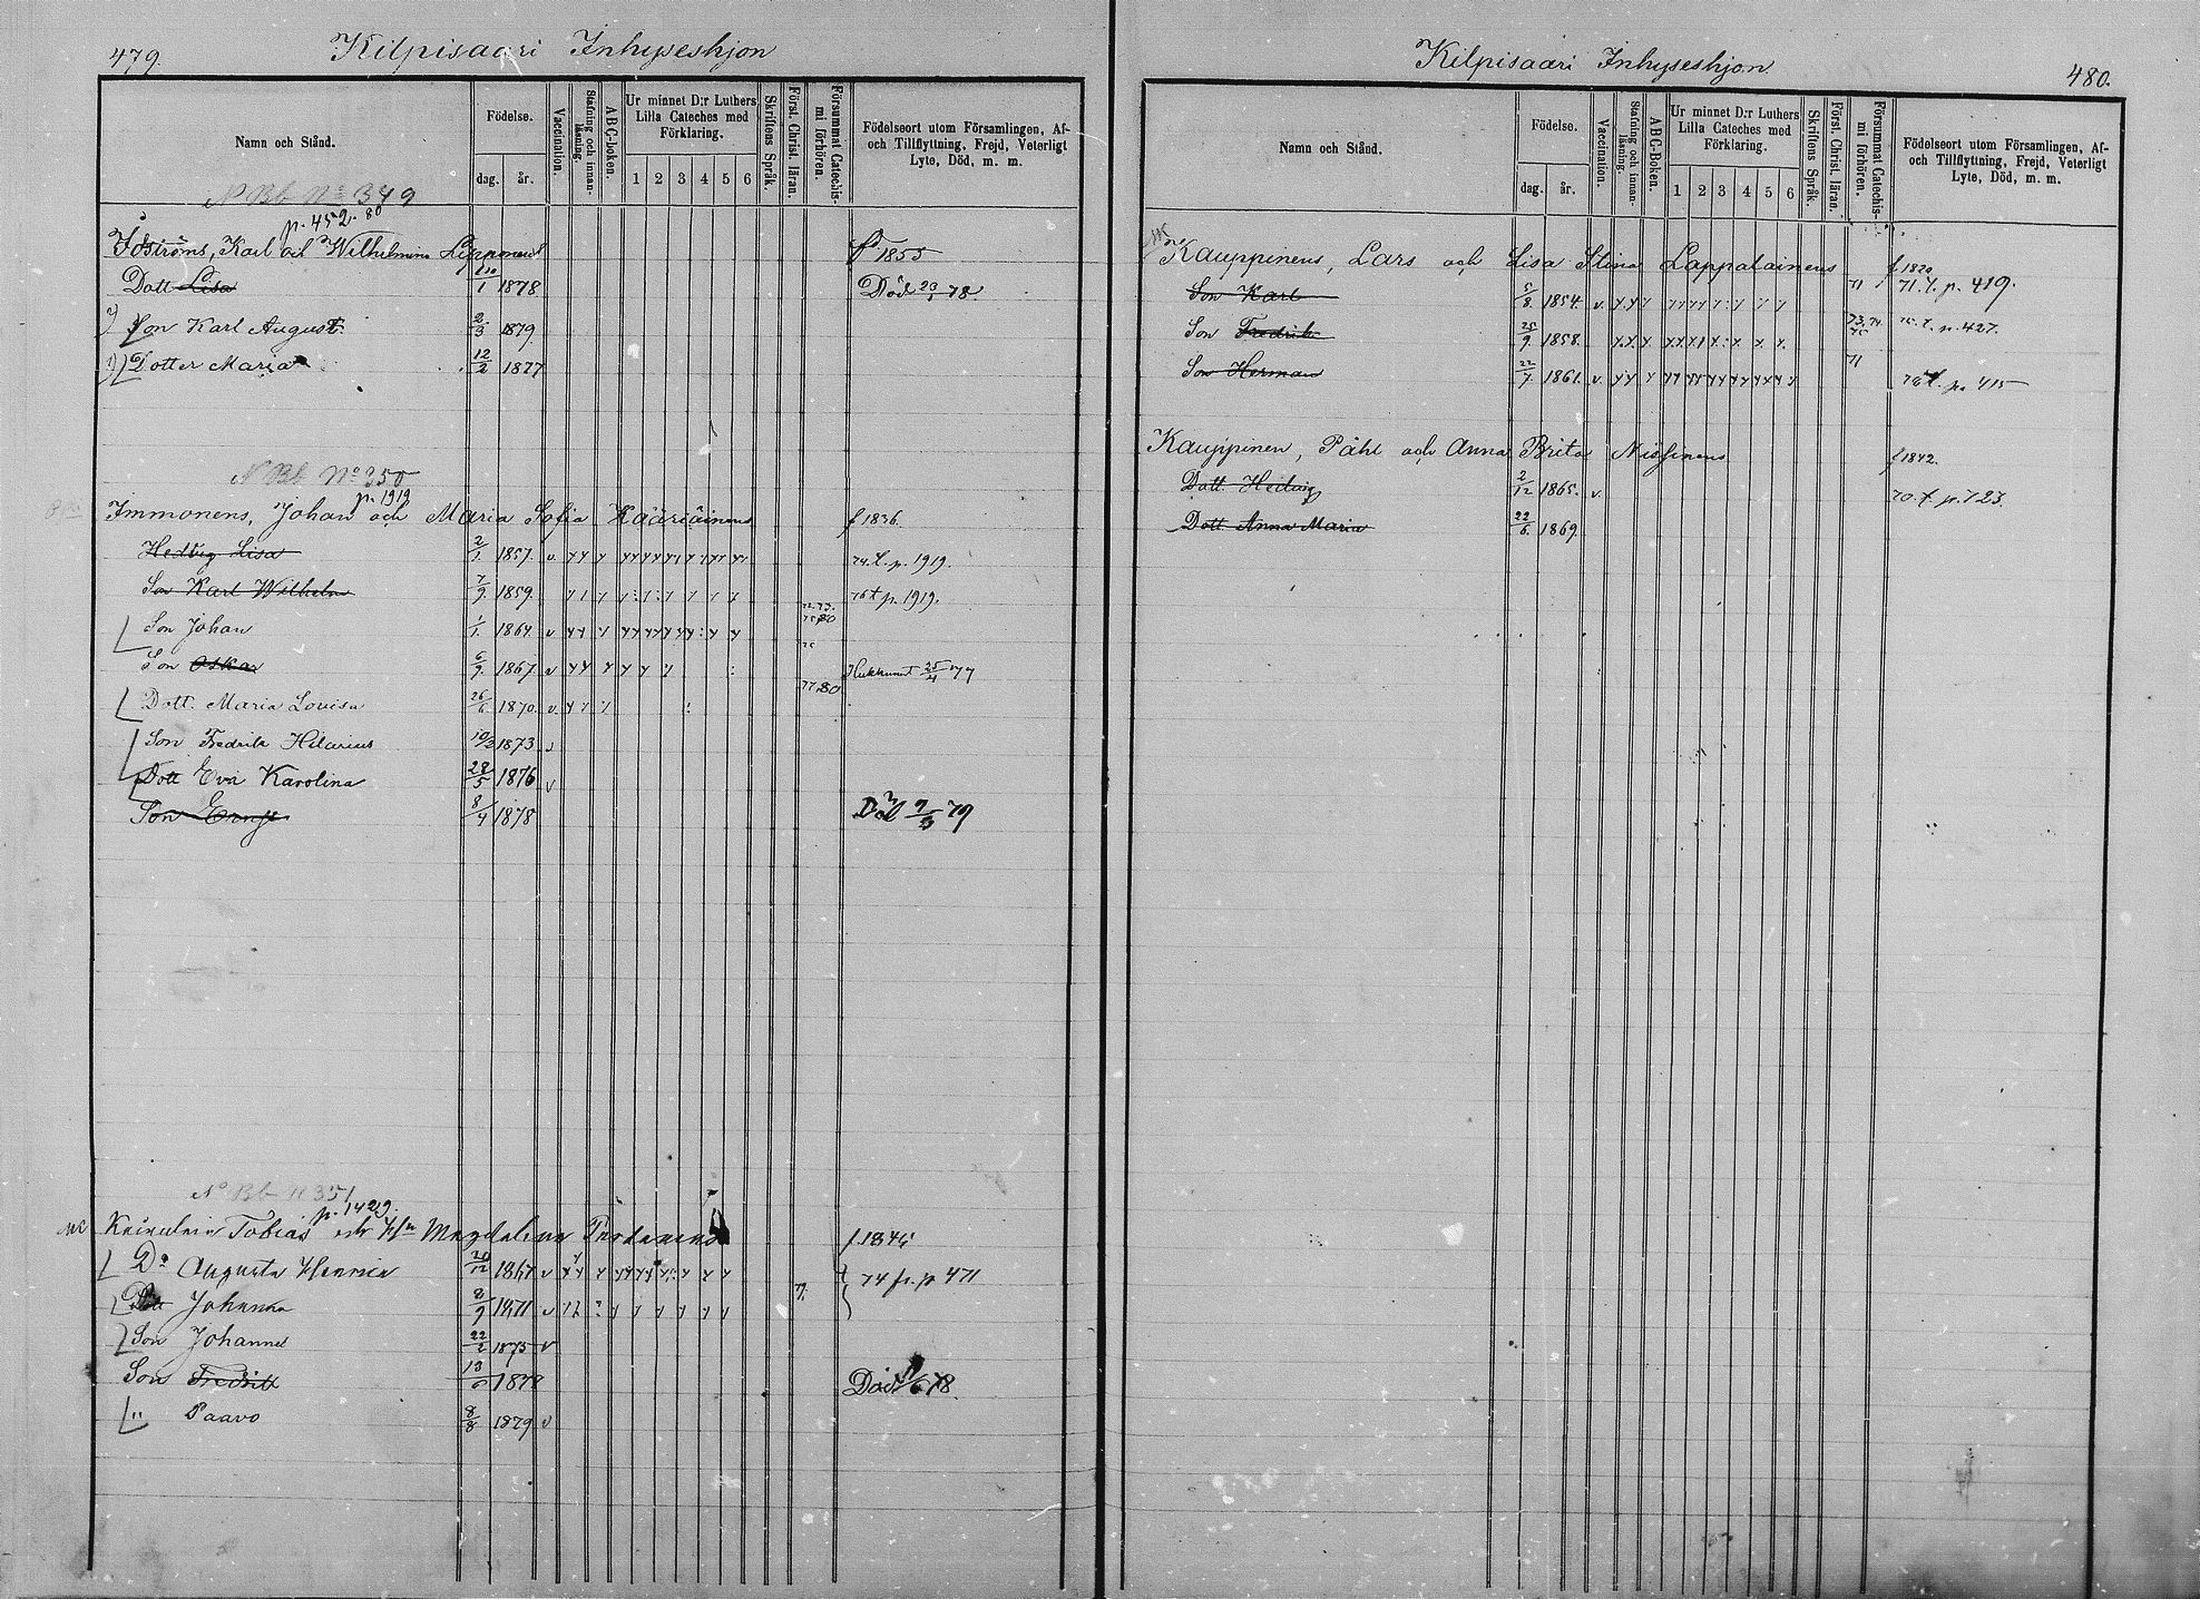 479. Kilpisaari Inhyseshjon
Namn och Stånd.
Födelse.
dag. år.
Vaccination.
Stafning och innan-läsning.
ABC-boken.
Ur minnet D:r Luthers Lilla Cateches med Förklaring.
1 2 3 4 5 6
Skriftens Språk.
Först. Christ. läran.
Försummat Catechis-mi förhören.
Födelseort utom Församlingen, Af- och Tillflyttning, Frejd, Veterligt Lyte, Död, m. m.
N Bb No 349
p. 452. 80
Karl och Wilhelmina Lipponens f 1855
Dott Lisa 1 1878 Död 78
Son Karl August 2/3 1879
Dotter Maria 12/2 1877
N Bb No 350
p. 1919
Immonens, Johan och Maria Sofia Hääriäinens f 1836.
Hedvig Lisa 2/1. 1857. v. 74. t. p. 1919.
Son Karl Wilhelm 7/9. 1859. 76 t p. 1919.
72.73.
Son Johan 1/1. 1864 v 75,80
75
Son Oskar 6/9. 1867. v Hukkunut 25/4 77
77,80
Dott. Maria Lovisa 26/6 1870. v.
Son Fredrik Hilarius 10/2 1873 v
Dott Eva Karolina 28/5 1876 v
Son Ernst 8/4 1878 Död 79
N Bb N 351
p. 1429.
Tobias Magdalena f. 1846
Augusta Henrica 1867 v 74 fr. p 471
Dott Johanna 8/9 1871 v
Son Johannes 22/2 1875 v
Son Fredrik 13/6 1878 Död 78.
" Paavo 8/8 1879 v
Kilpisaari Inhyseshjon. 480.
Namn och Stånd.
Födelse.
dag. år.
Vaccination.
Stafning och innan-läsning.
ABC-Boken.
Ur minnet D:r Luthers Lilla Cateches med Förklaring.
1 2 3 4 5 6
Skriftens Språk.
Först. Christ. läran.
Försummat Catechis-mi förhören.
Födelseort utom Församlingen, Af- och Tillflyttning, Frejd, Veterligt Lyte, Död, m. m.
Kauppinens, Lars och Lisa Stina Lappalainens f. 1820
Son Karl 5/8. 1854. v. 71 71. t. p. 419.
Son Fredrik 25/9. 1858. 73,74 75 t. p. 427.
Son Herman 22/7. 1861. v. 71 t. p. 415
Kauppinen, Påhl och Anna Brita Nissinens f 1842.
Dott. Hedvig 2/12 1865. v. 70. t. p. 723.
Dott. Anna Maria 22/6. 1869.